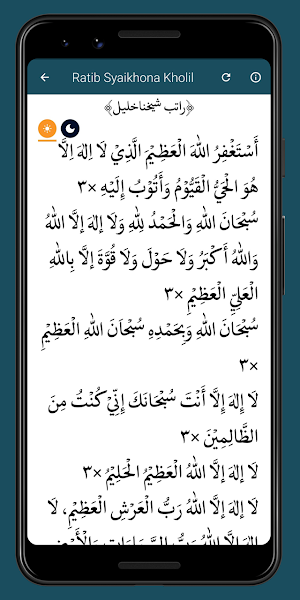 Ratib Syaikhona Kholil
﴿راتب شيخنا خليل﴾
أَسْتَغْفِرُ اللهَ الْعَظِيْمَ الَّذِيْ لَا إِلٰهَ إِلَّا
هُوَ الْحَيُّ الْقَيُّوْمُ وَأَتُوْبُ إِلَيْهِ ×٣
سُبْحَانَ اللهِ وَالْحَمْدُ لِلهِ وَلَا إِلٰهَ إِلَّا اللهُ
وَاللهُ أَكْبَرُ وَلَا حَوْلَ وَلَا قُوَّةَ إِلَّا بِاللهِ
الْعَلِيِّ الْعَظِيْمِ ×٣
سُبْحَانَ اللهِ وَبِحَمْدِهِ سُبْحَانَ اللهِ الْعَظِيْمِ
×٣
لَا إِلٰهَ إِلَّا أَنْتَ سُبْحَانَكَ إِنِّيْ كُنْتُ مِنَ
الظَّالِمِيْنَ ×٣
لَا إِلٰهَ إِلَّا اللهُ الْعَظِيْمُ الْحَلِيْمُ ×٣
لَا إِلٰهَ إِلَّا اللهُ رَبُّ الْعَرْشِ الْعَظِيْمِ، لَا
إِلٰهَ إِلَّا اللهُ رَبُّ السَّمَاوَاتِ وَالْأَرْضِ